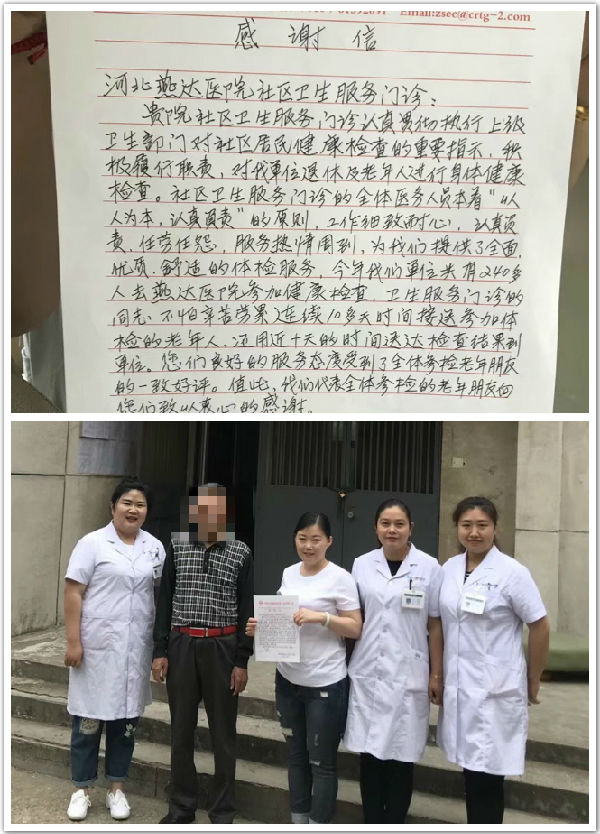 Email:zsec@crtg-2.com
感谢信
河北燕达医院社区卫生服务门诊:
贵院社区卫生服务门诊认真贯彻执行上级
卫生部门对社区居民健康检查的重要指示,积
极履行职责,对我单位退休及老年人进行身体健康
检查。社区卫生服务门诊的全体医务人员本着"以
人为本,认真负责"的原则,工作细致耐心,认真负
责,任劳任怨,服务热情周到,为我们提供了全面,
优质,舒适的体检服务,今年我们单位共有240多
人去燕达医院参加健康检查,卫生服务门诊的
同志,不怕辛苦劳累,连续10多天时间接送参加体
检的老年人,还用近十天的时间送达检查结果到
单位。您们良好的服务态度受到了全体参检老年朋友
的一致好评。值此,我们代表全体参检的老年朋友向
您们致以衷心的感谢。